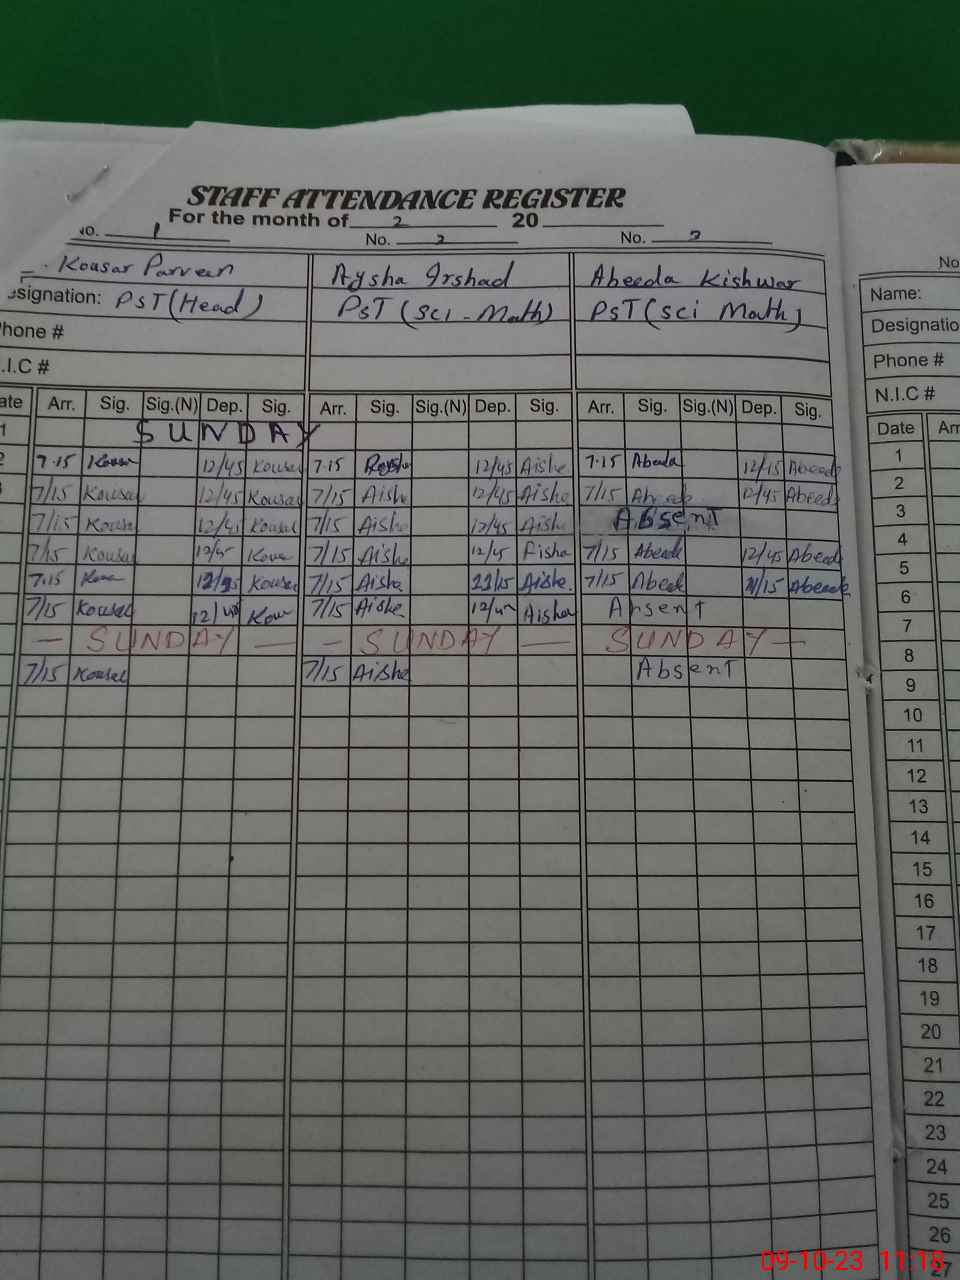 STAFF ATTENDANCE REGISTER
For the month of 2 20
No. 1 No. 2 No.
Kousar Parveen Aysha Irshad Abeeda Kishwar
esignation: PST (Head) PST (Sci - Math) PST (Sci Math)
hone #
.I.C #
ate Arr. Sig. Sig.(N) Dep. Sig. Arr. Sig. Sig.(N) Dep. Sig. Arr. Sig. Sig.(N) Dep. Sig.
1 SUNDAY
2 7.15 Kousar 12/45 Kousar 7.15 12/45 Aishe 7.15 Abeeda 12/15 Abeeda
7/15 Kousar 12/45 Kousar 7/15 Aishe 12/45 Aishe 7/15 Abeeda 12/45 Abeeda
7/15 Kousar 12/45 Kousar 7/15 Aishe 12/45 Aishe Absent
7/15 Kousar 12/45 7/15 Aishe 12/45 7/15 Abeeda 12/45 Abeeda
7.15 Kousar 7/15 Aisha 11/15 Aishe 7/15 Abeeda 11/15 Abeeda
7/15 Kousar 7/15 Aishe Aisha Absent
— SUNDAY — - SUNDAY — SUNDAY —
7/15 Kousar 7/15 Aishe Absent
No
Name:
Designatio
Phone #
N.I.C #
Date Arr
1
2
3
4
5
6
7
8
9
10
11
12
13
14
15
16
17
18
19
20
21
22
23
24
25
26
27
09-10-23 11:18